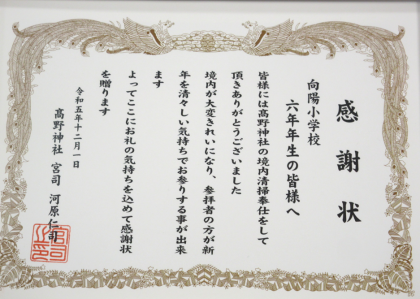 感謝状
向陽小学校
六年年生の皆様へ
皆様には高野神社の境内清掃奉仕をして
頂きありがとうございました
境内が大変きれいになり、参拝者の方が新
年を清々しい気持ちでお参りする事が出来
ます
よってここにお礼の気持ちを込めて感謝状
を贈ります
令和五年十二月一日
高野神社 宮司 河原仁司